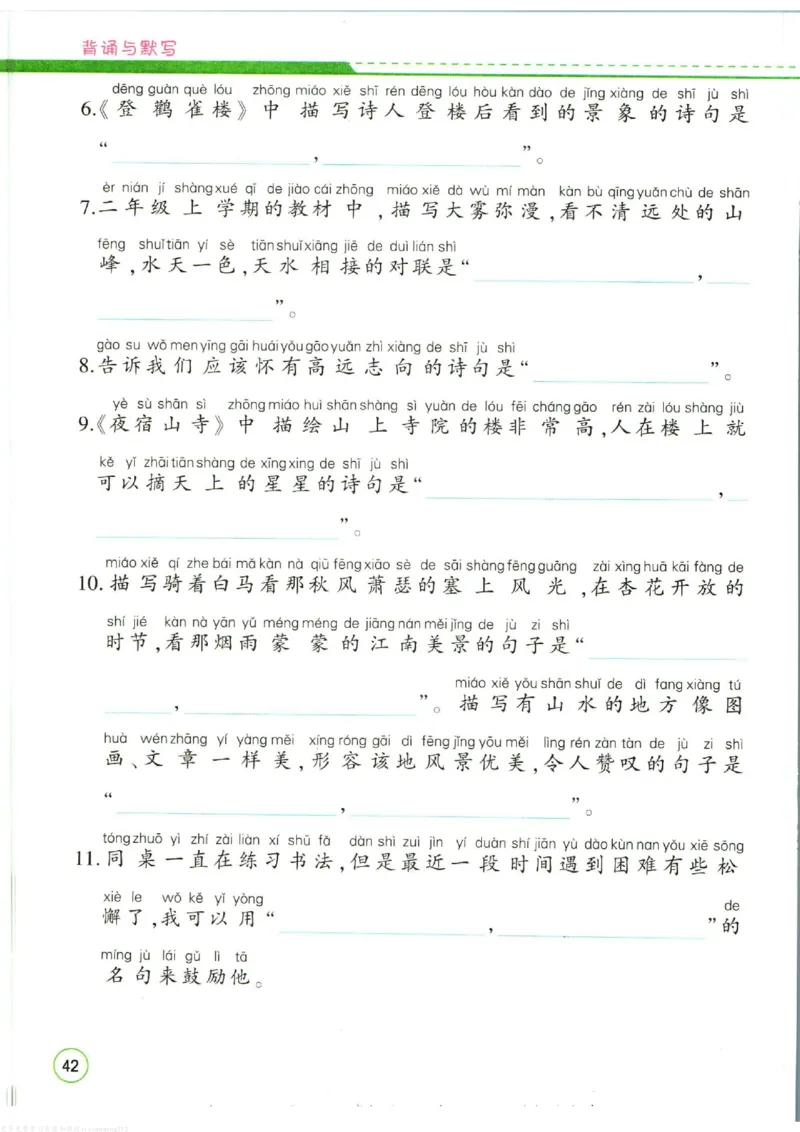 背诵与默写
dēng guàn què lóu zhōng miáo xiě shī rén dēng lóu hòu kàn dào de jǐng xiàng de shī jù shì
6.《登鹳雀楼》中描写诗人登楼后看到的景象的诗句是
“，”。
èr nián jí shàng xué qī de jiào cái zhōng miáo xiě dà wù mí màn kàn bù qīng yuǎn chù de shān
7.二年级上学期的教材中,描写大雾弥漫,看不清远处的山
fēng shuǐ tiān yí sè tiān shuǐ xiāng jiē de duì lián shì
峰,水天一色,天水相接的对联是“，
”。
gào su wǒ men yīng gāi huái yǒu gāo yuǎn zhì xiàng de shī jù shì
8.告诉我们应该怀有高远志向的诗句是“”。
yè sù shān sì zhōng miáo huì shān shàng sì yuàn de lóu fēi cháng gāo rén zài lóu shàng jiù
9.《夜宿山寺》中描绘山上寺院的楼非常高,人在楼上就
kě yǐ zhāi tiān shàng de xīng xing de shī jù shì
可以摘天上的星星的诗句是“，
”。
miáo xiě qí zhe bái mǎ kàn nà qiū fēng xiāo sè de sāi shàng fēng guāng zài xìng huā kāi fàng de
10.描写骑着白马看那秋风萧瑟的塞上风光,在杏花开放的
shí jié kàn nà yān yǔ méng méng de jiāng nán měi jǐng de jù zi shì
时节,看那烟雨蒙蒙的江南美景的句子是“
miáo xiě yǒu shān shuǐ de dì fang xiàng tú
，”。描写有山水的地方像图
huà wén zhāng yí yàng měi xíng róng gāi dì fēng jǐng yōu měi lìng rén zàn tàn de jù zi shì
画、文章一样美,形容该地风景优美,令人赞叹的句子是
“，”。
tóng zhuō yì zhí zài liàn xí shū fǎ dàn shì zuì jìn yí duàn shí jiān yù dào kùn nan yǒu xiē sōng
11.同桌一直在练习书法,但是最近一段时间遇到困难有些松
xiè le wǒ kě yǐ yòng de
懈了,我可以用“，”的
míng jù lái gǔ lì tā
名句来鼓励他。
42